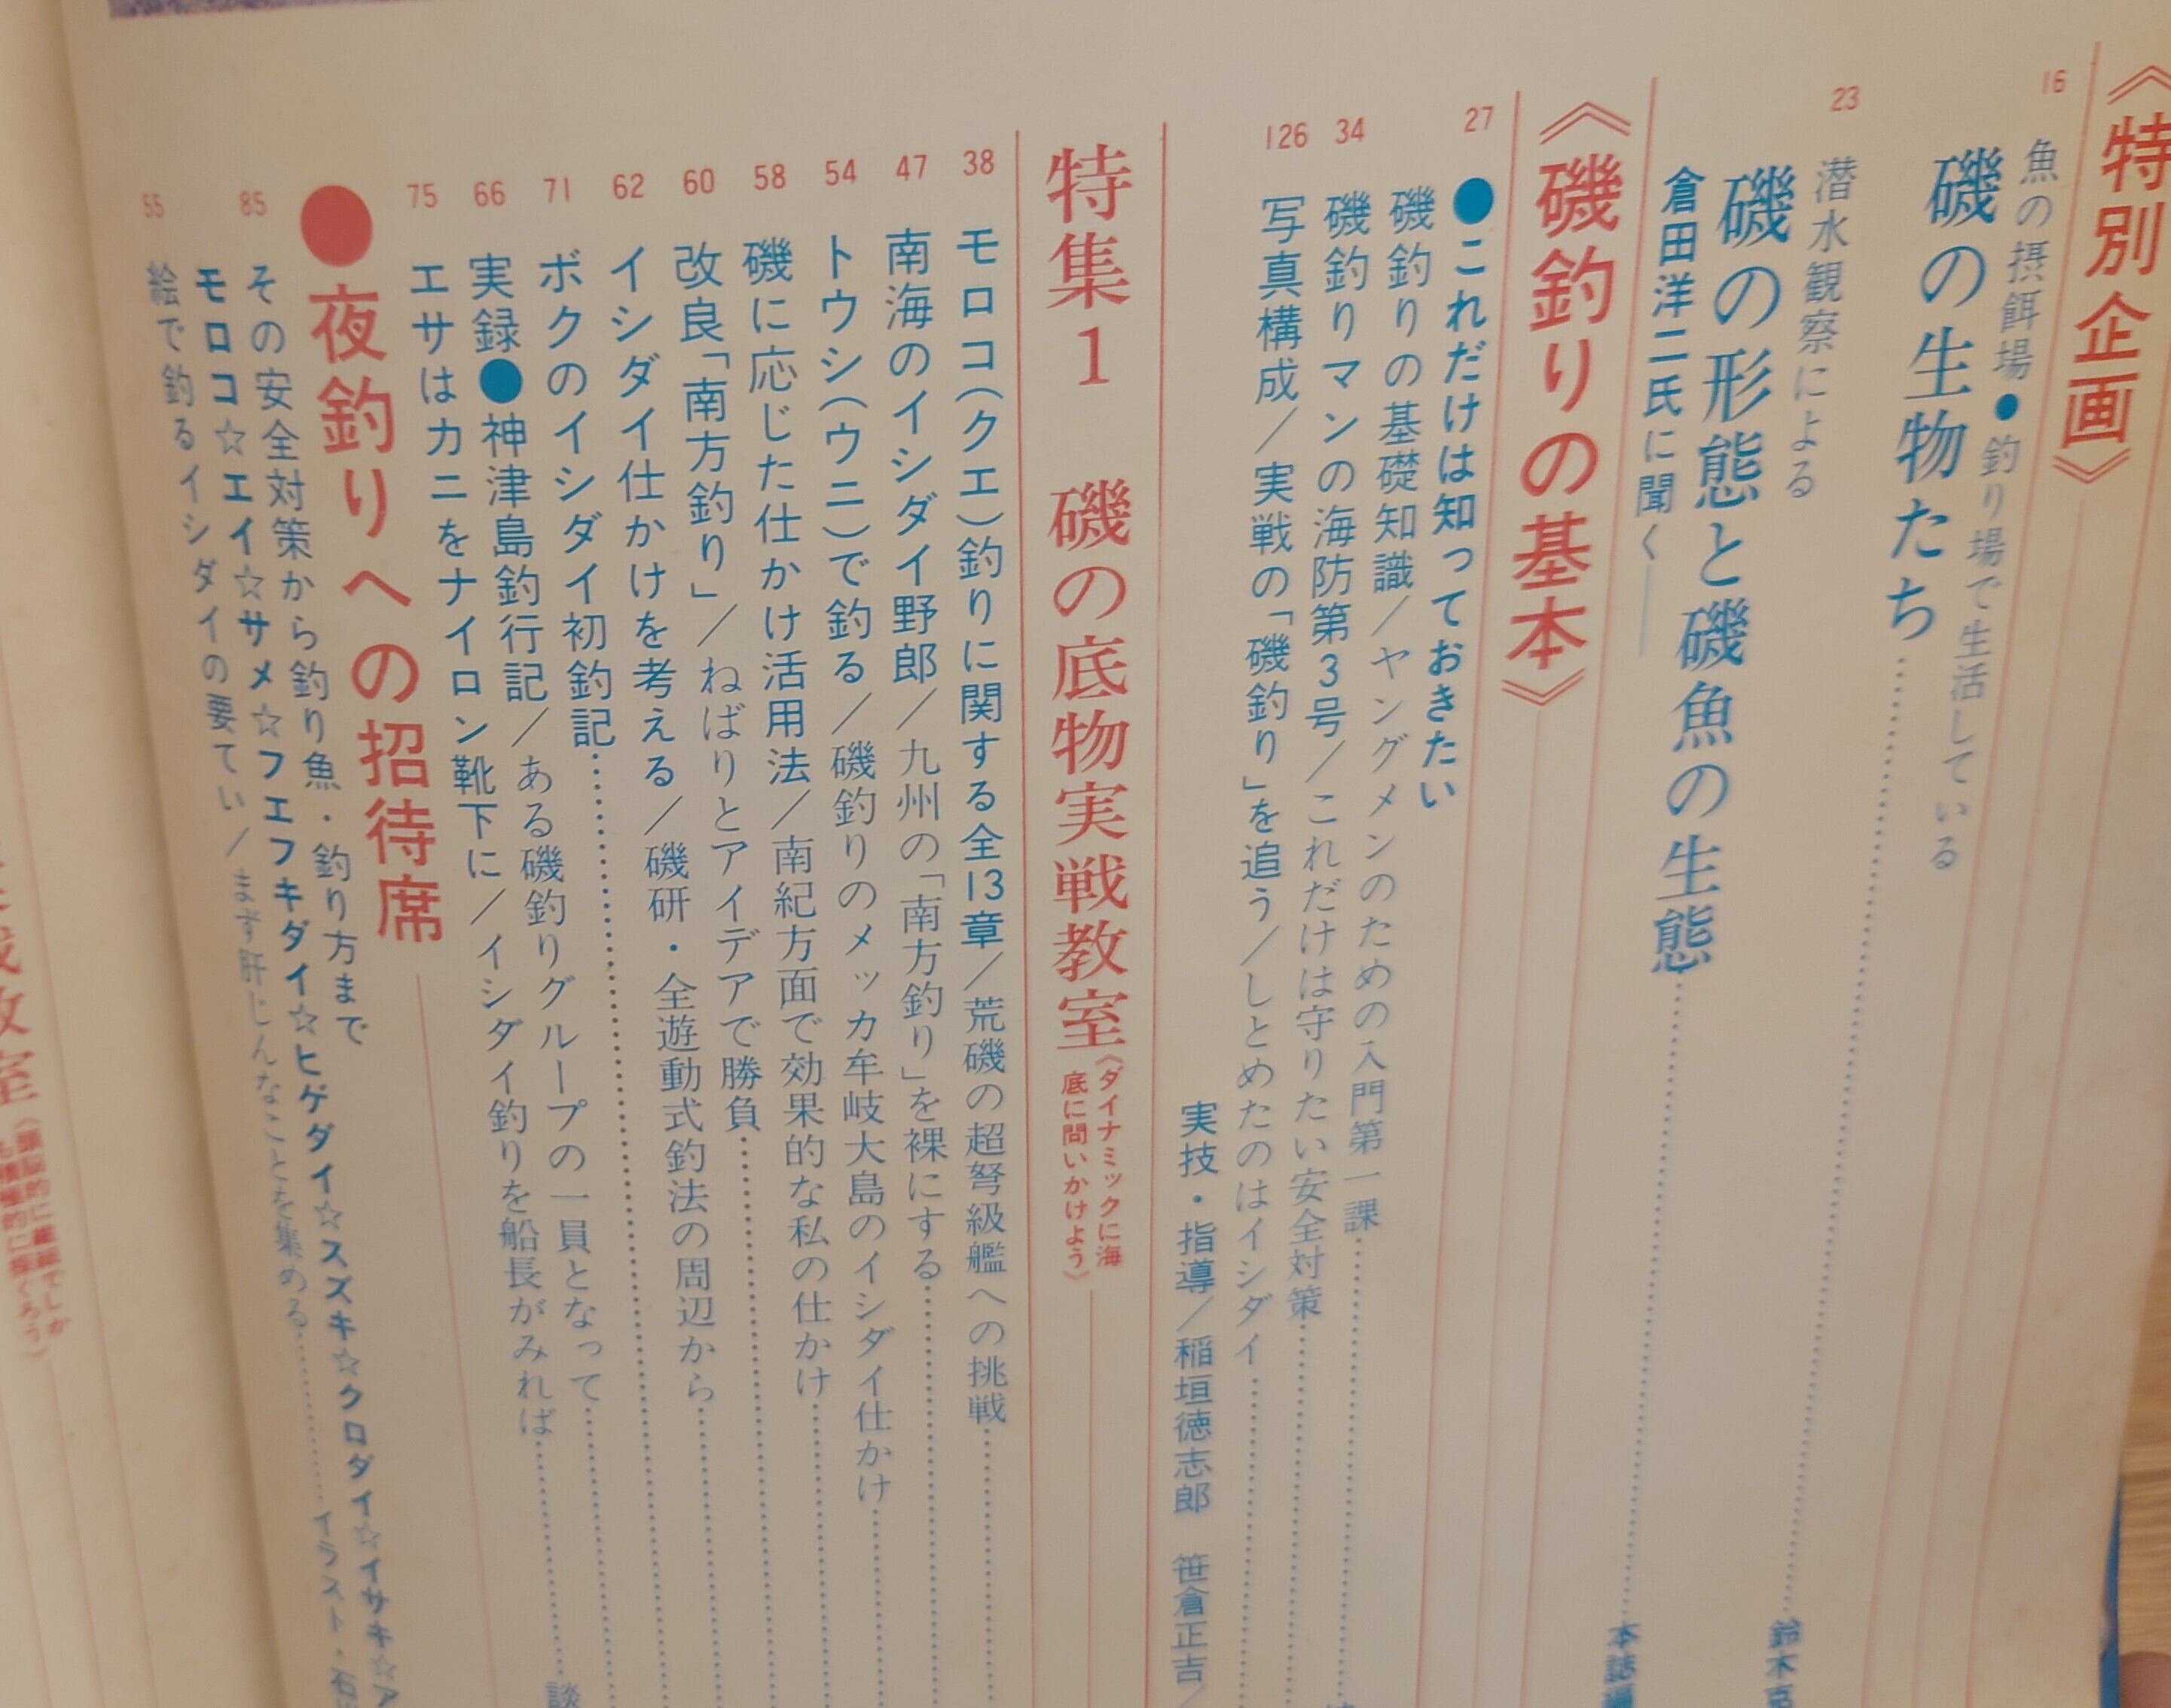 《特別企画》
16
魚の摂餌場●釣り場で生活している
磯の生物たち
23
潜水観察による
磯の形態と磯魚の生態
倉田洋二氏に聞く――
鈴木克
本誌編
《磯釣りの基本》
27
●これだけは知っておきたい
磯釣りの基礎知識／ヤングメンのための入門第一課
34
磯釣りマンの海防第3号／これだけは守りたい安全対策
126
写真構成／実戦の「磯釣り」を追う／しとめたのはイシダイ
実技・指導／稲垣徳志郎 笹倉正吉／
特集1 磯の底物実戦教室
《ダイナミックに海
底に問いかけよう》
38
モロコ(クエ)釣りに関する全13章／荒磯の超弩級艦への挑戦
47
南海のイシダイ野郎／九州の「南方釣り」を裸にする
54
トウシ(ウニ)で釣る／磯釣りのメッカ牟岐大島のイシダイ仕かけ
58
磯に応じた仕かけ活用法／南紀方面で効果的な私の仕かけ
60
改良「南方釣り」／ねばりとアイデアで勝負
62
イシダイ仕かけを考える／磯研・全遊動式釣法の周辺から
71
ボクのイシダイ初釣記
66
実録●神津島釣行記／ある磯釣りグループの一員となって
75
エサはカニをナイロン靴下に／イシダイ釣りを船長がみれば
談
●夜釣りへの招待席
85
その安全対策から釣り魚・釣り方まで
モロコ☆エイ☆サメ☆フエフキダイ☆ヒゲダイ☆スズキ☆クロダイ☆イサキ☆ア
55
絵で釣るイシダイの要てい／まず肝じんなことを集める
イラスト・石
教室